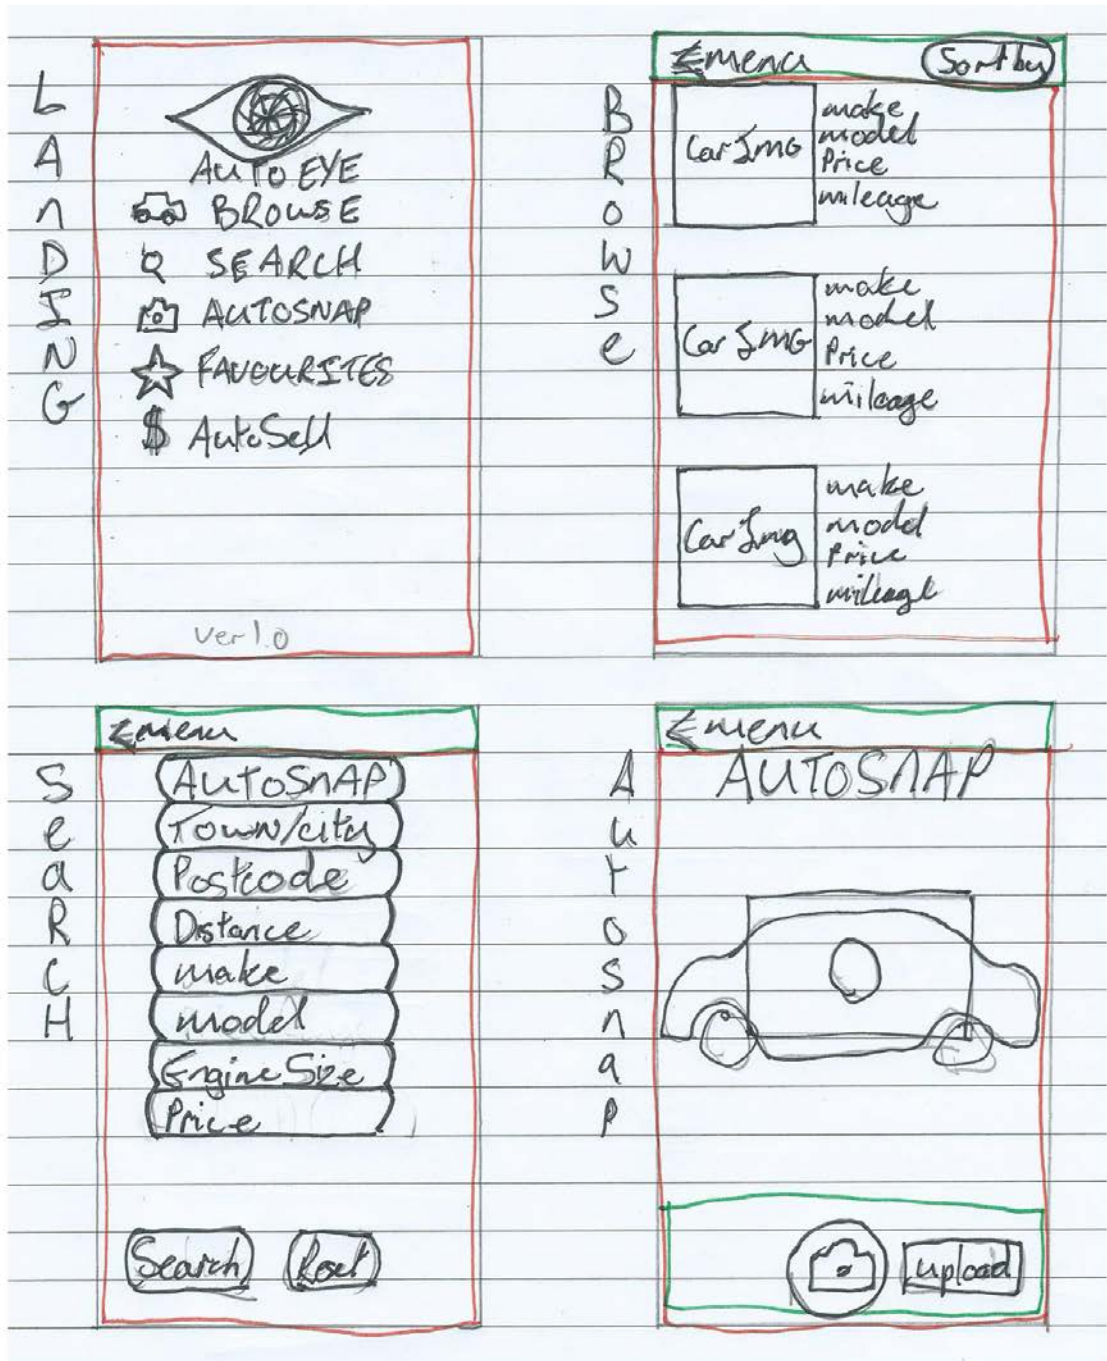 LAnDING
AUTO EYE
BROWSE
SEARCH
AUTOSNAP
FAVOURITES
$ AutoSell
Ver 1.0
BRowSe
menu
Sort by
Car Img
make
model
Price
mileage
Car Img
make
model
Price
mileage
Car Img
make
model
Price
mileage
SeaRCH
menu
AUTOSnAP
Town/city
Postcode
Distance
make
model
Engine Size
Price
Search
Reset
AuToSnap
menu
AUTOSnAP
upload